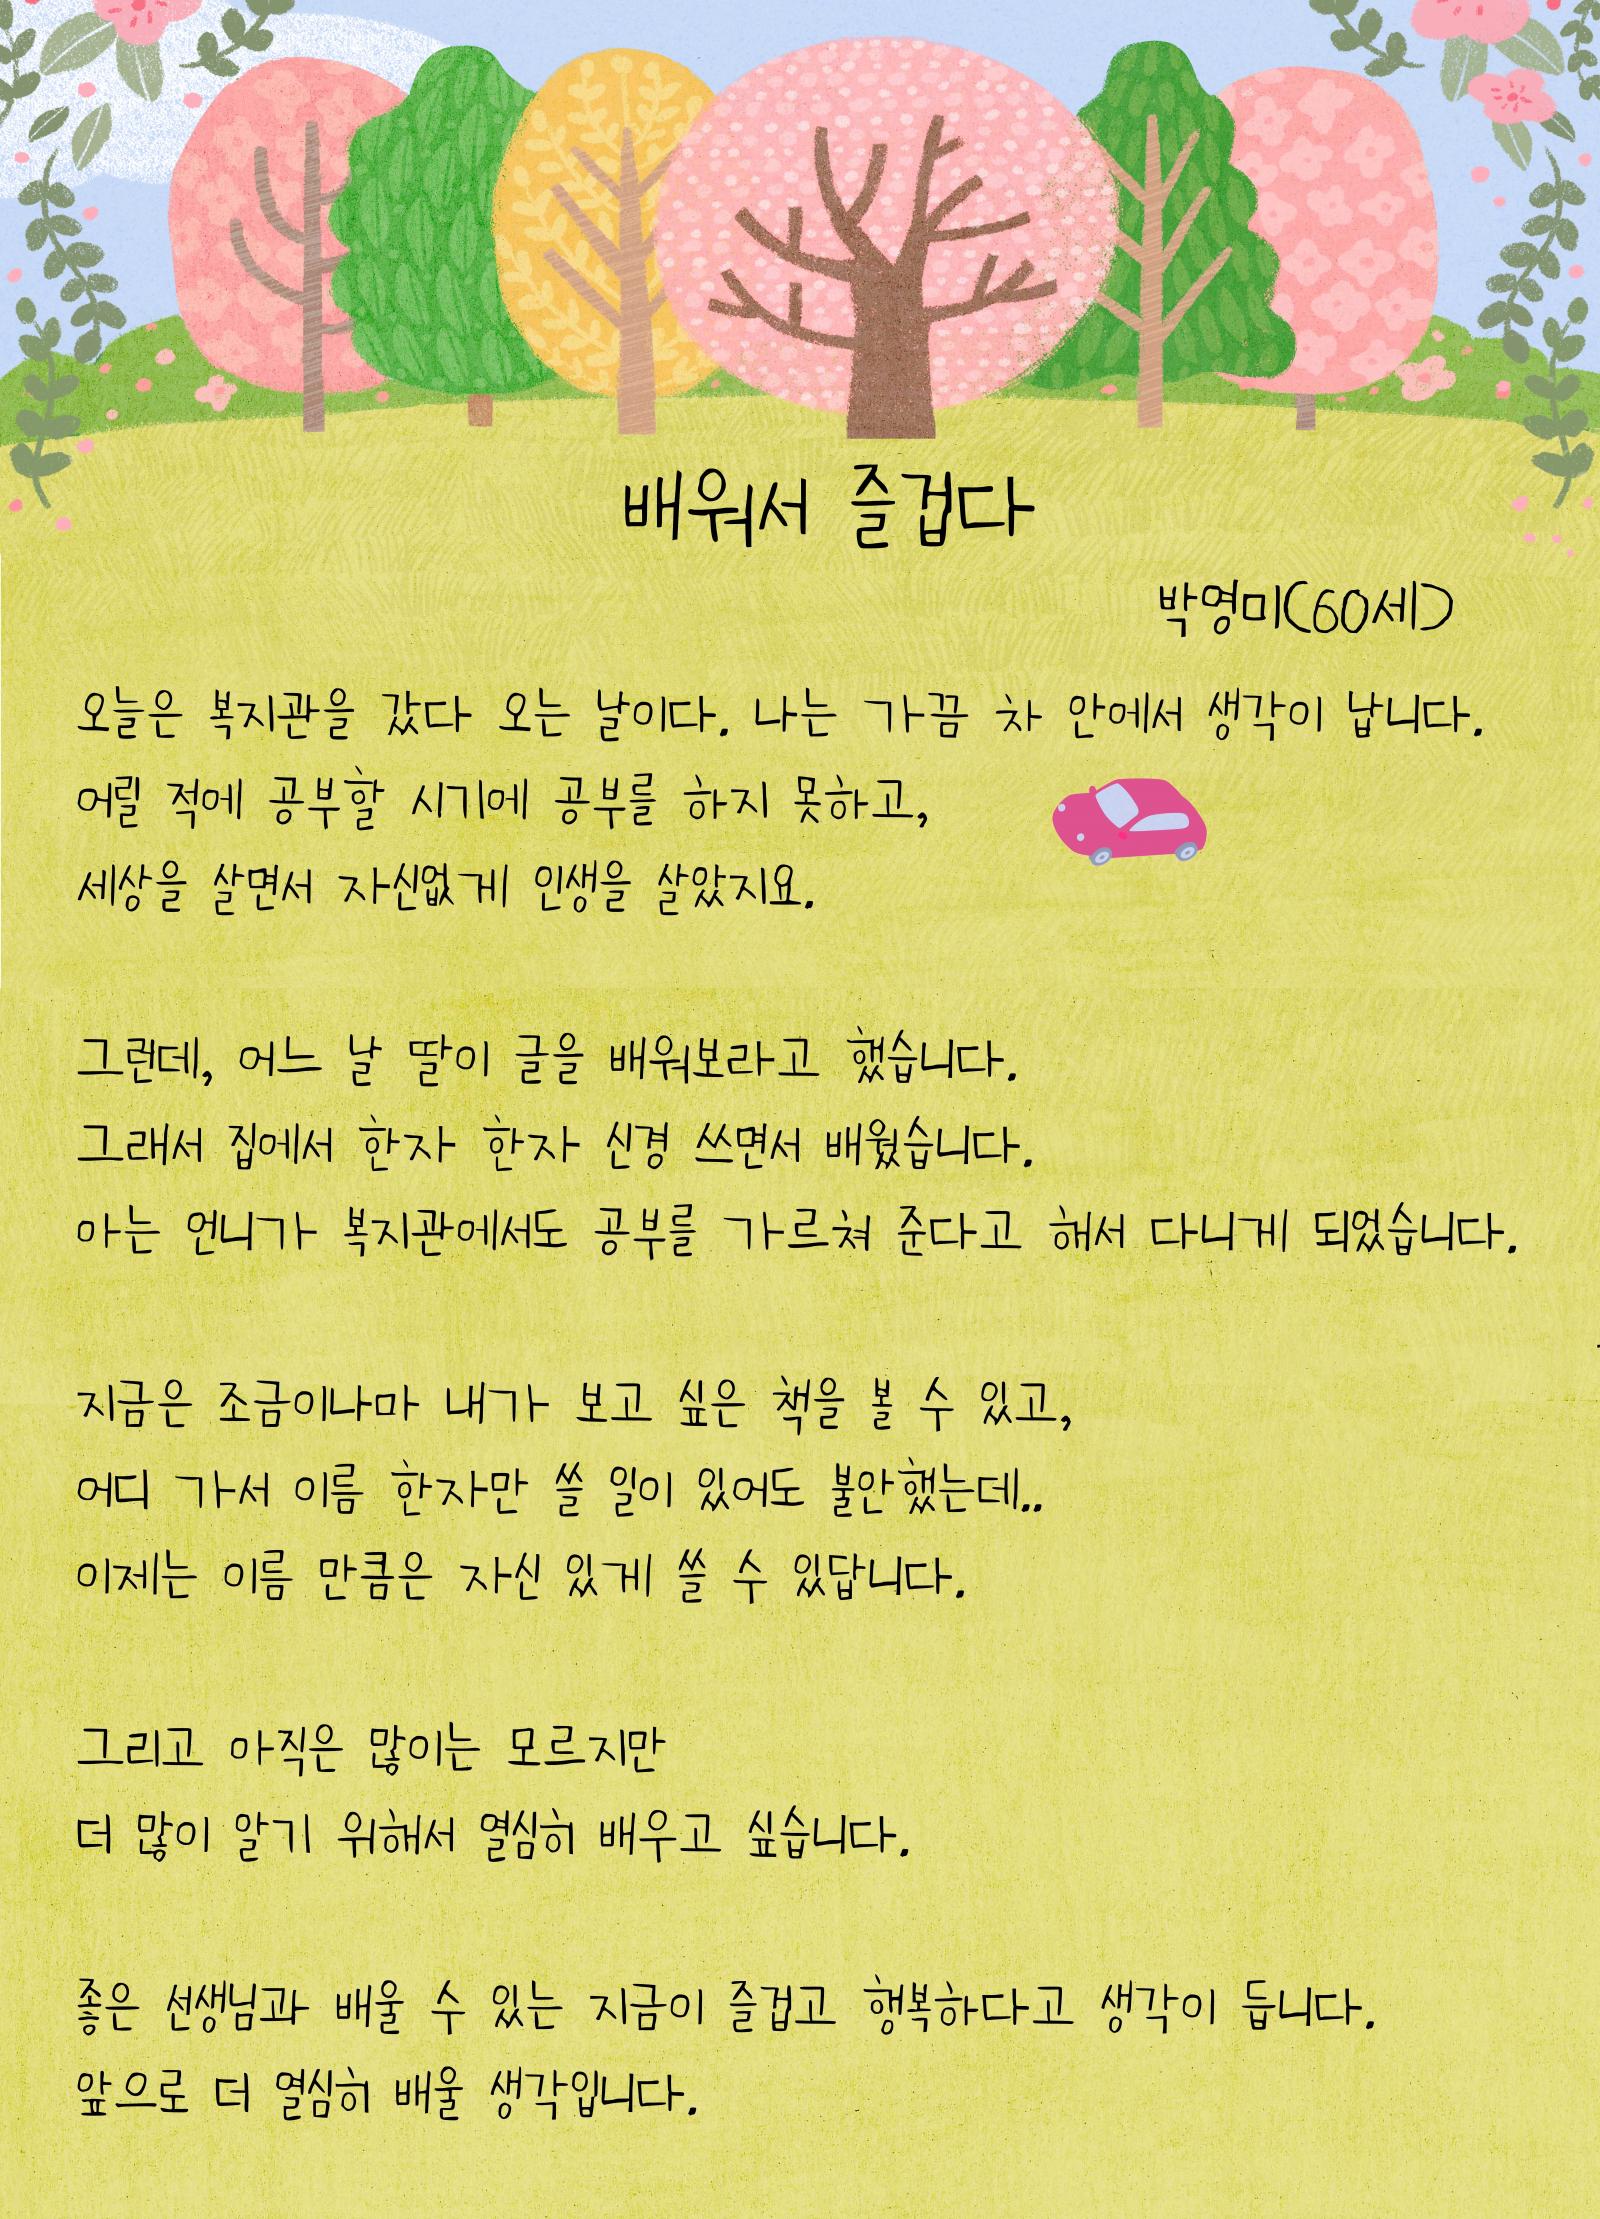 배워서 즐겁다
박영미(60세)
오늘은 복지관을 갔다 오는 날이다. 나는 가끔 차 안에서 생각이 납니다.
어릴 적에 공부할 시기에 공부를 하지 못하고,
세상을 살면서 자신없게 인생을 살았지요.
그런데, 어느 날 딸이 글을 배워보라고 했습니다.
그래서 집에서 한자 한자 신경 쓰면서 배웠습니다.
아는 언니가 복지관에서도 공부를 가르쳐 준다고 해서 다니게 되었습니다.
지금은 조금이나마 내가 보고 싶은 책을 볼 수 있고,
어디 가서 이름 한자만 쓸 일이 있어도 불안했는데..
이제는 이름 만큼은 자신 있게 쓸 수 있답니다.
그리고 아직은 많이는 모르지만
더 많이 알기 위해서 열심히 배우고 싶습니다.
좋은 선생님과 배울 수 있는 지금이 즐겁고 행복하다고 생각이 듭니다.
앞으로 더 열심히 배울 생각입니다.